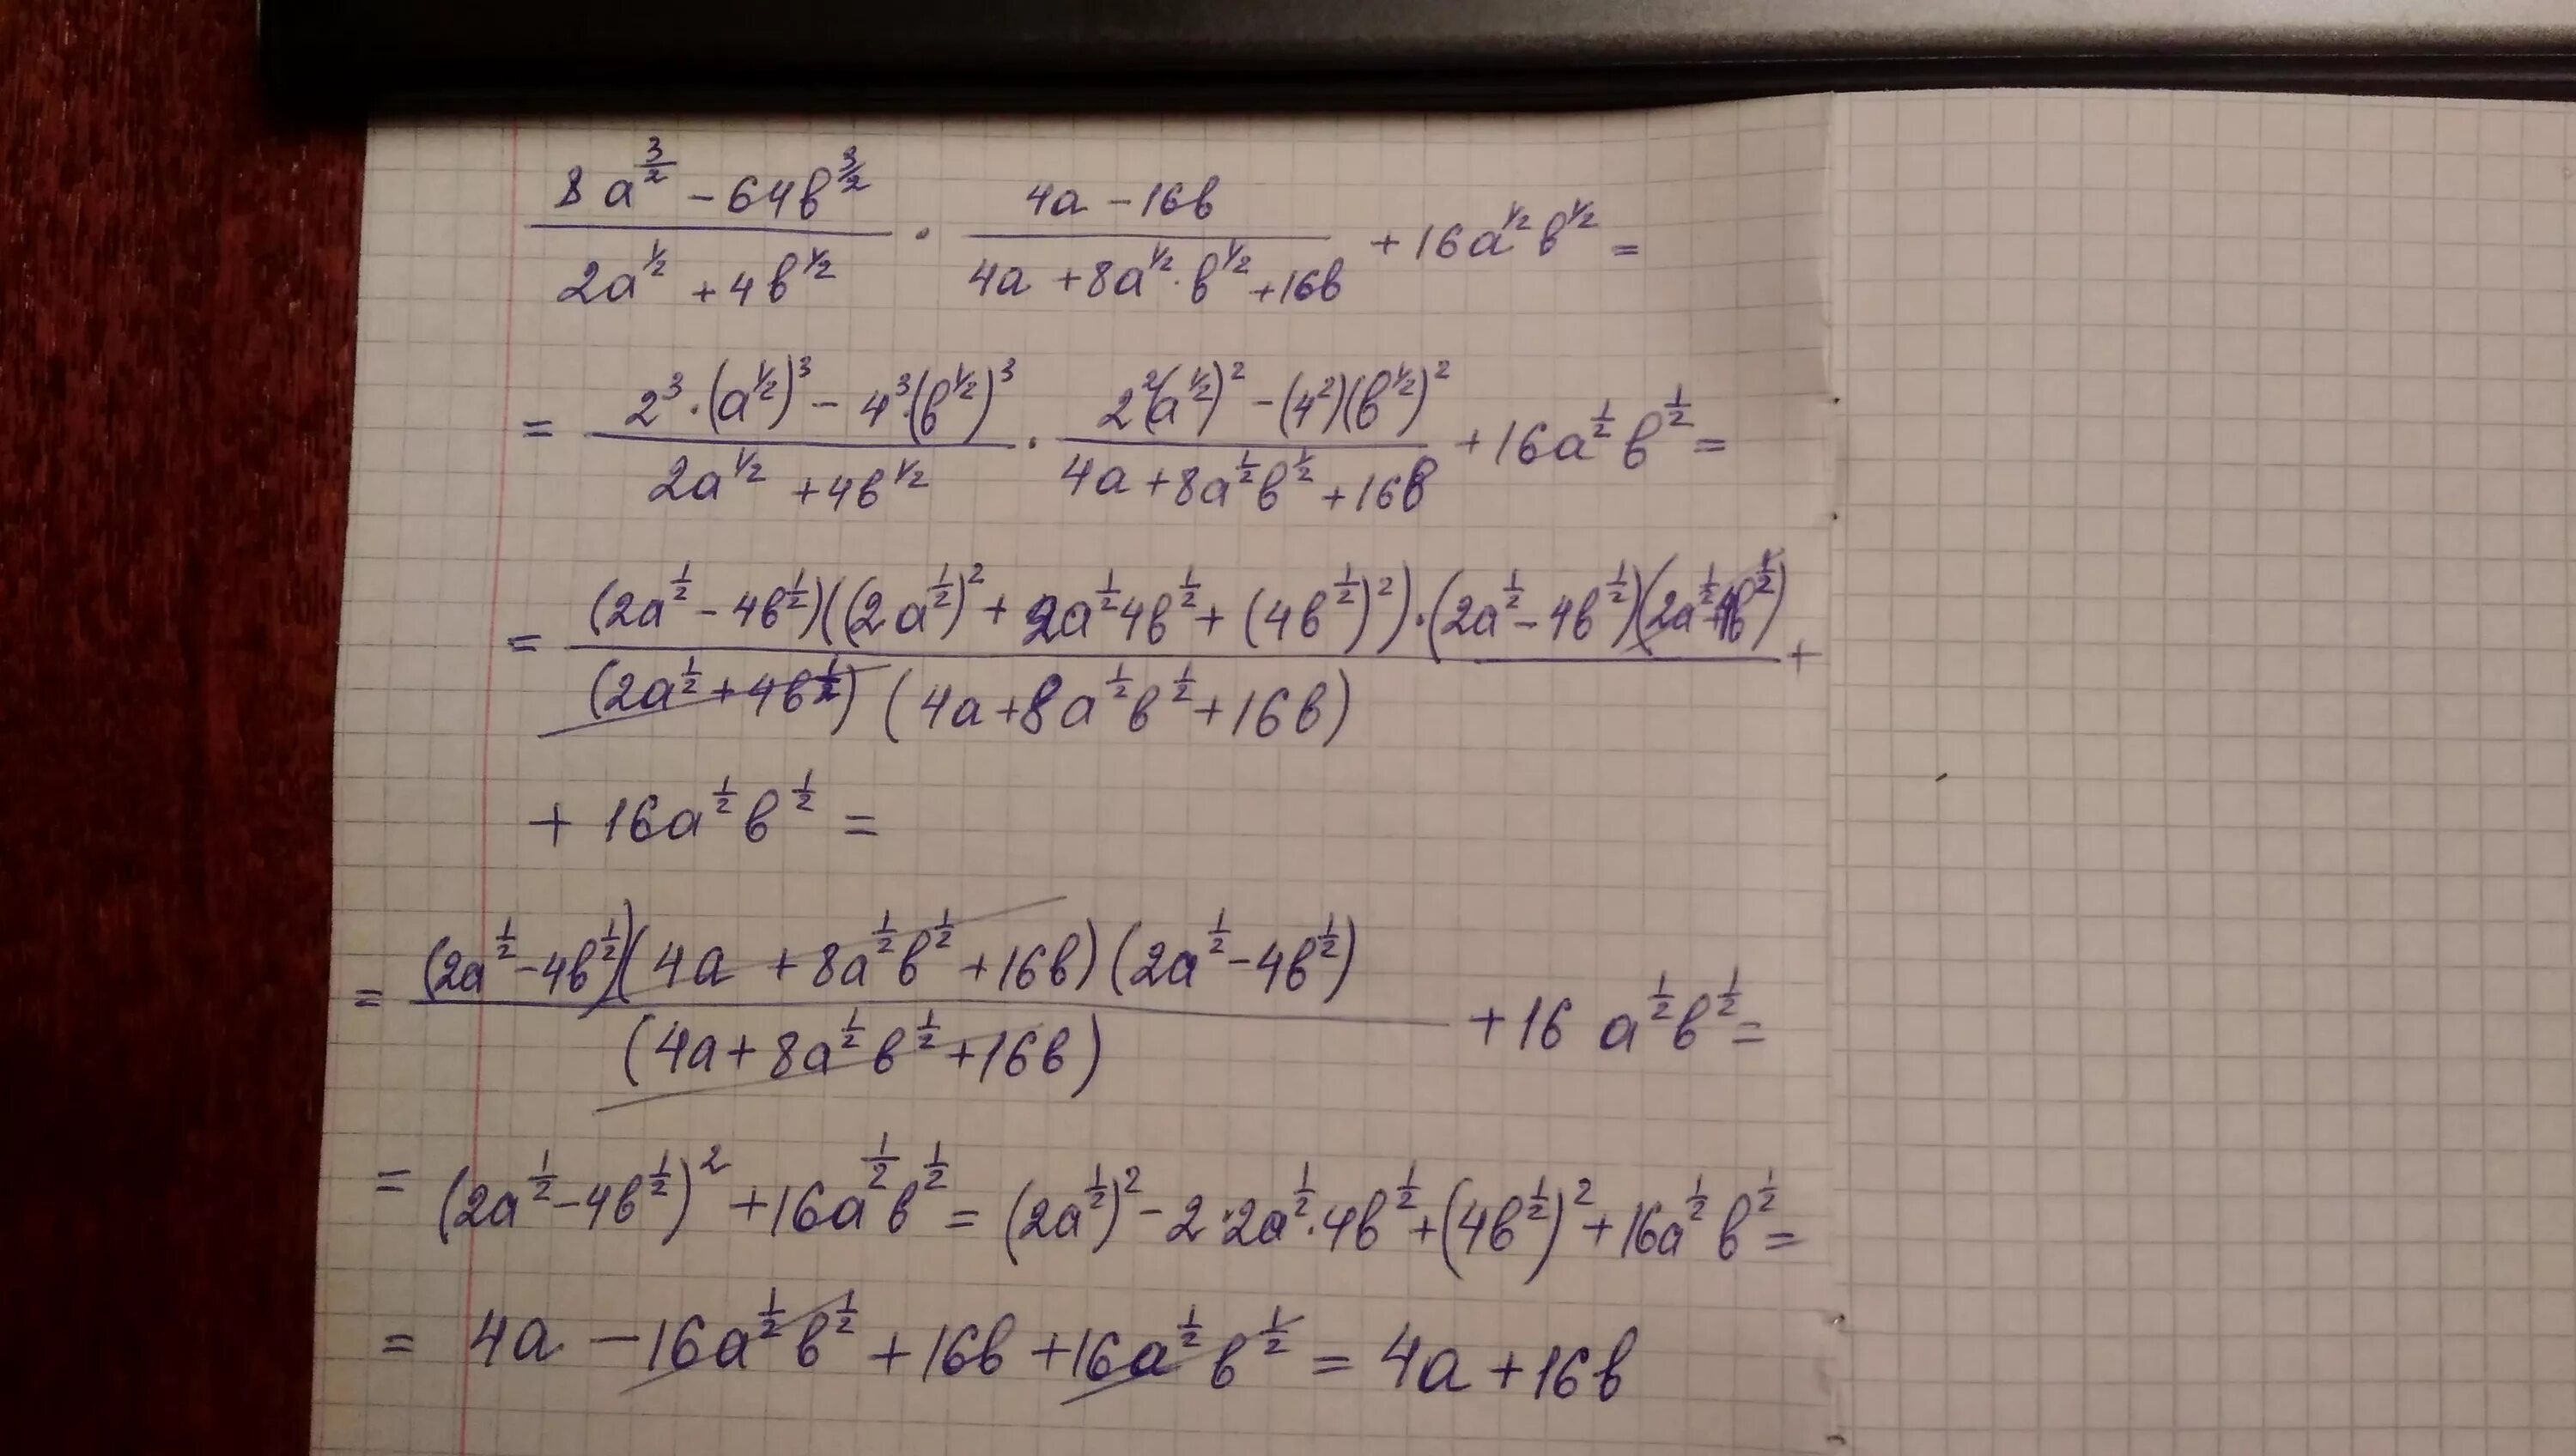 (8a^(3/2) - 64b^(3/2)) / (2a^(1/2) + 4b^(1/2)) · (4a - 16b) / (4a + 8a^(1/2) · b^(1/2) + 16b) + 16a^(1/2) b^(1/2) =
= (2^3 · (a^(1/2))^3 - 4^3 · (b^(1/2))^3) / (2a^(1/2) + 4b^(1/2)) · (2^2 (a^(1/2))^2 - (4^2)(b^(1/2))^2) / (4a + 8a^(1/2) b^(1/2) + 16b) + 16a^(1/2) b^(1/2) =
= (2a^(1/2) - 4b^(1/2))((2a^(1/2))^2 + 2a^(1/2) 4b^(1/2) + (4b^(1/2))^2) · (2a^(1/2) - 4b^(1/2))(2a^(1/2) + 4b^(1/2)) / (2a^(1/2) + 4b^(1/2)) (4a + 8a^(1/2) b^(1/2) + 16b) +
+ 16a^(1/2) b^(1/2) =
= (2a^(1/2) - 4b^(1/2))(4a + 8a^(1/2) b^(1/2) + 16b)(2a^(1/2) - 4b^(1/2)) / (4a + 8a^(1/2) b^(1/2) + 16b) + 16 a^(1/2) b^(1/2) =
= (2a^(1/2) - 4b^(1/2))^2 + 16a^(1/2) b^(1/2) = (2a^(1/2))^2 - 2 · 2a^(1/2) · 4b^(1/2) + (4b^(1/2))^2 + 16a^(1/2) b^(1/2) =
= 4a - 16a^(1/2) b^(1/2) + 16b + 16a^(1/2) b^(1/2) = 4a + 16b